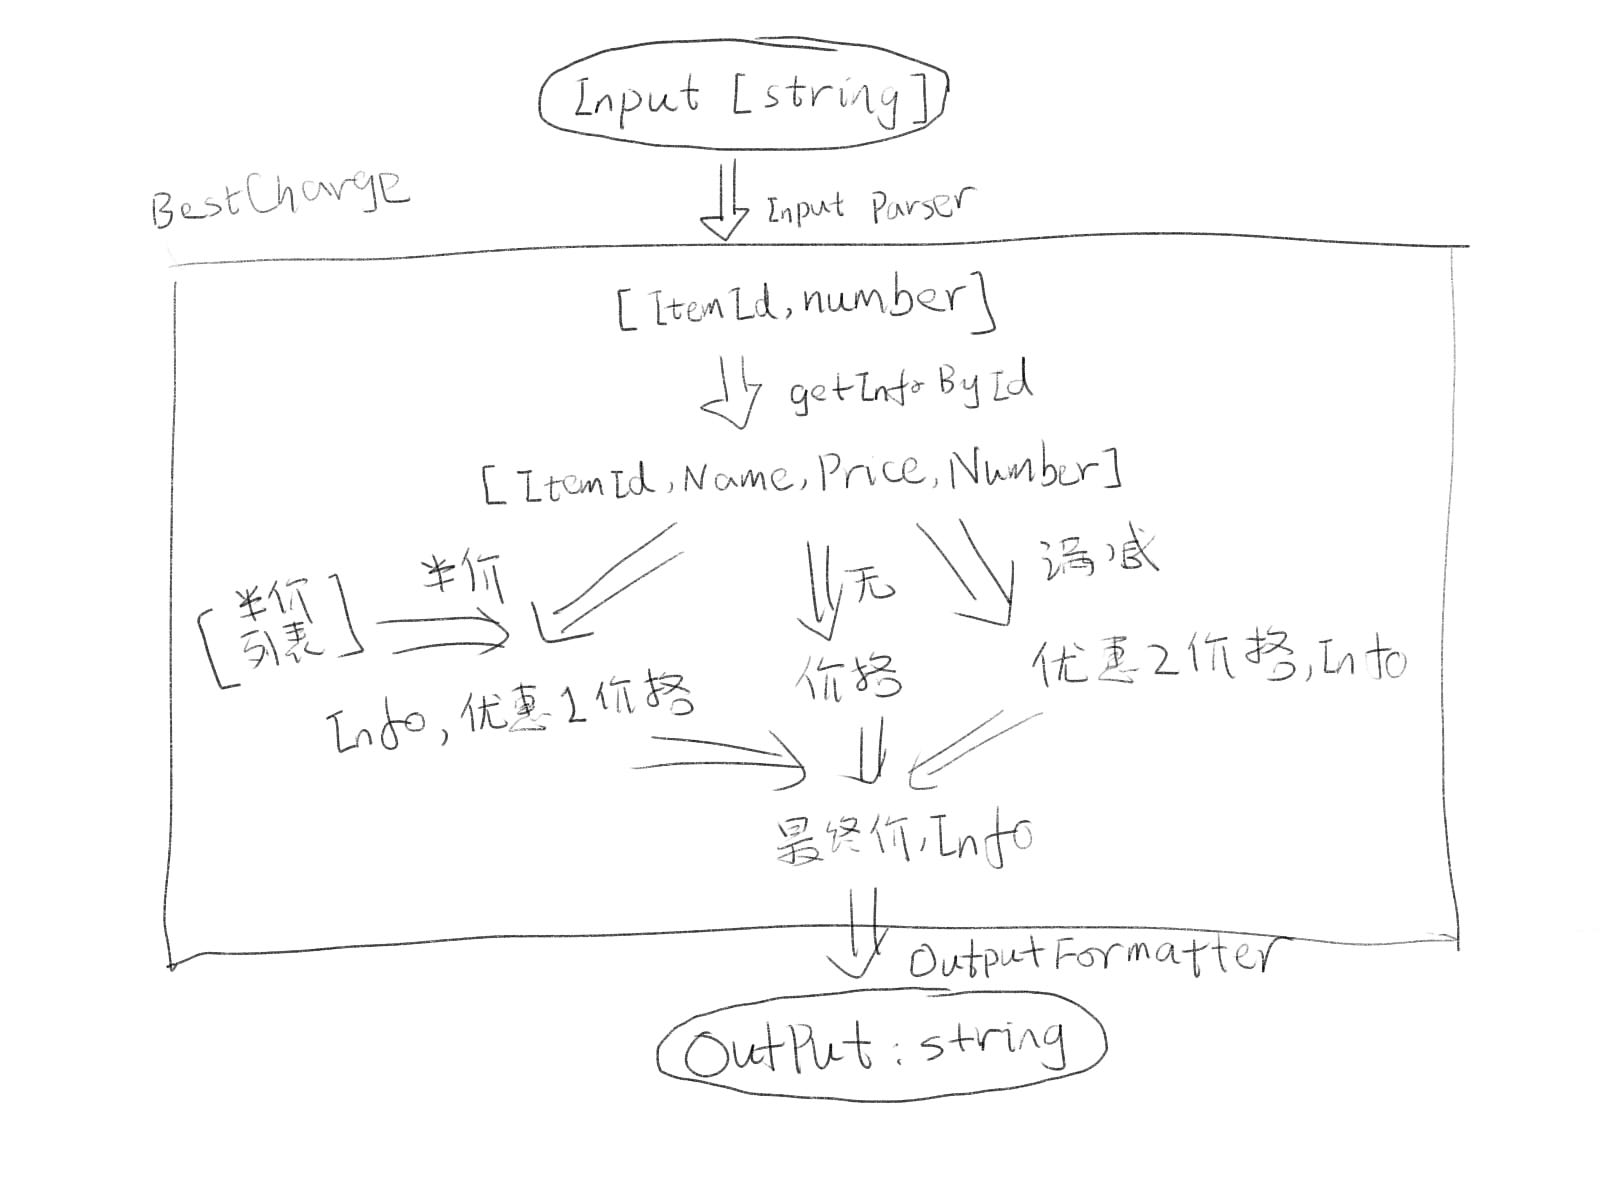 Input [string]
BestCharge
Input Parser
[ItemId, number]
getInfoById
[ItemId, Name, Price, Number]
半价
满减
无
[半价
列表]
Info, 优惠1价格
价格
优惠2价格, Info
最终价, Info
OutputFormatter
OutPut: string